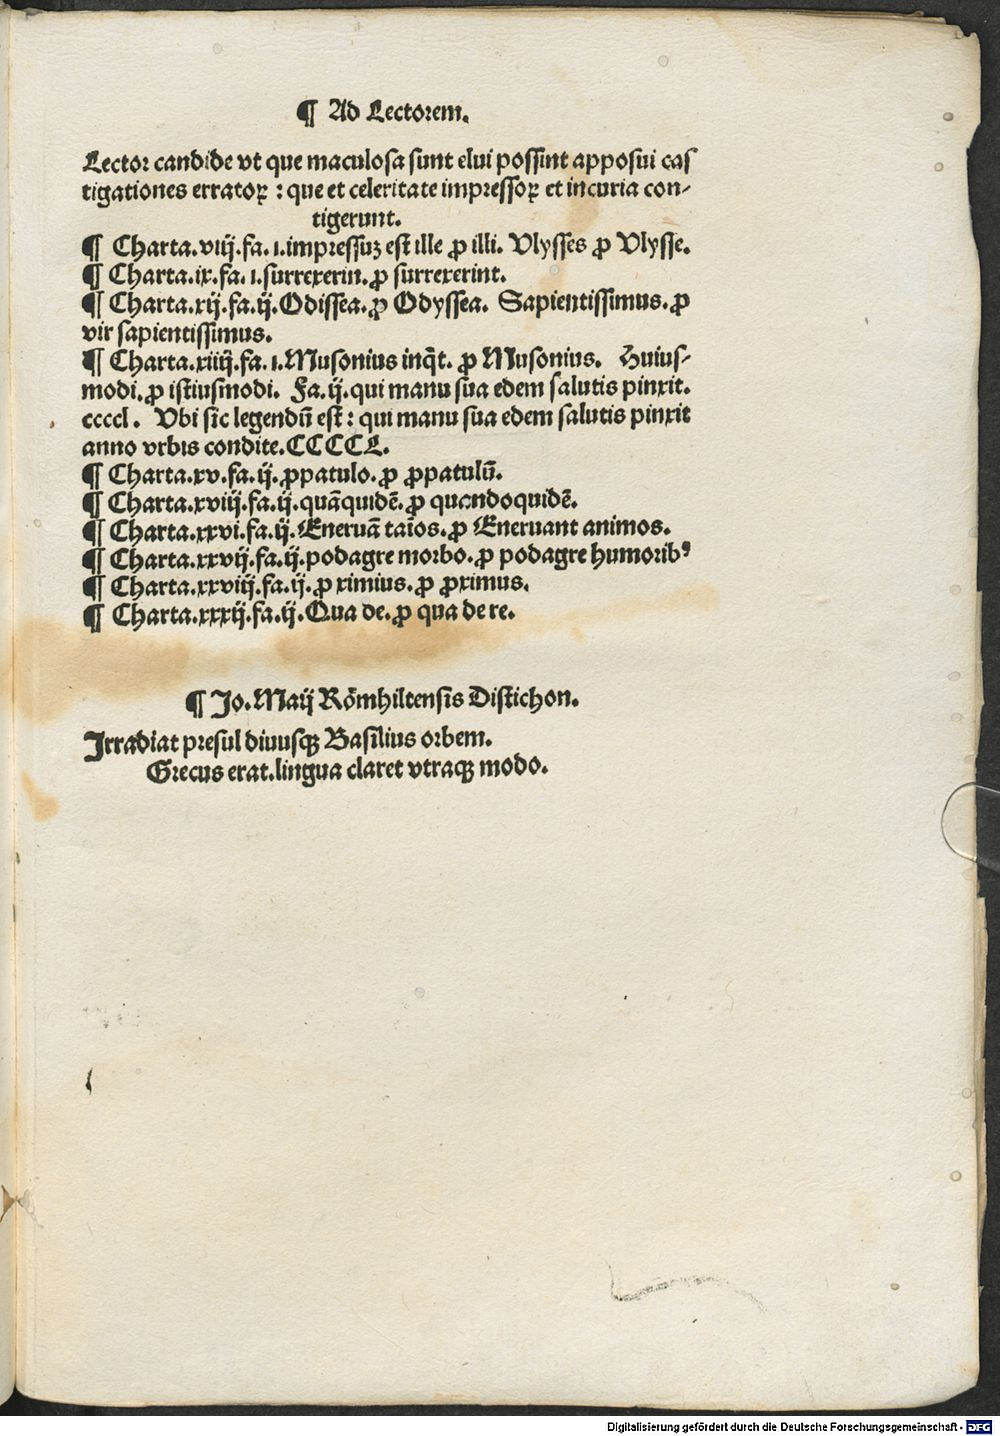 ¶ Ad Lectorem.
Lector candide vt que maculosa sunt elui possint apposui cas
tigationes erratoꝝ : que et celeritate impressoꝝ et incuria con-
tigerunt.
¶ Charta.viij.fa.i.impressuꝫ est ille ꝓ illi. Vlysses ꝓ Vlysse.
¶ Charta.ix.fa.i.surrexerin.ꝓ surrexerint.
¶ Charta.xij.fa.ij.Odissea.ꝓ Odyssea. Sapientissimus.ꝓ
vir sapientissimus.
¶ Charta.xiiij.fa.i.Musonius inq̃t.ꝓ Musonius. Huius-
modi.ꝓ istiusmodi. Fa.ij.qui manu sua edem salutis pinxit.
ccccl. Vbi sic legendũ est: qui manu sua edem salutis pinxit
anno vrbis condite.CCCCL.
¶ Charta.xv.fa.ij.ꝓpatulo.ꝓ ꝓpatulũ.
¶ Charta.xviij.fa.ij.quãquidẽ.ꝓ quandoquidẽ.
¶ Charta.xxvi.fa.ij.Eneruã taĩos.ꝓ Eneruant animos.
¶ Charta.xxvij.fa.ij.podagre morbo.ꝓ podagre humoribꝰ
¶ Charta.xxviij.fa.ij.ꝓ ximius.ꝓ ꝓximus.
¶ Charta.xxxij.fa.ij.Qua de.ꝓ qua de re.
¶ Jo.Maij Rõmhiltensis Distichon.
Irradiat presul diuusqꝫ Basilius orbem.
Grecus erat.lingua claret vtraqꝫ modo.
Digitalisierung gefördert durch die Deutsche Forschungsgemeinschaft - DFG